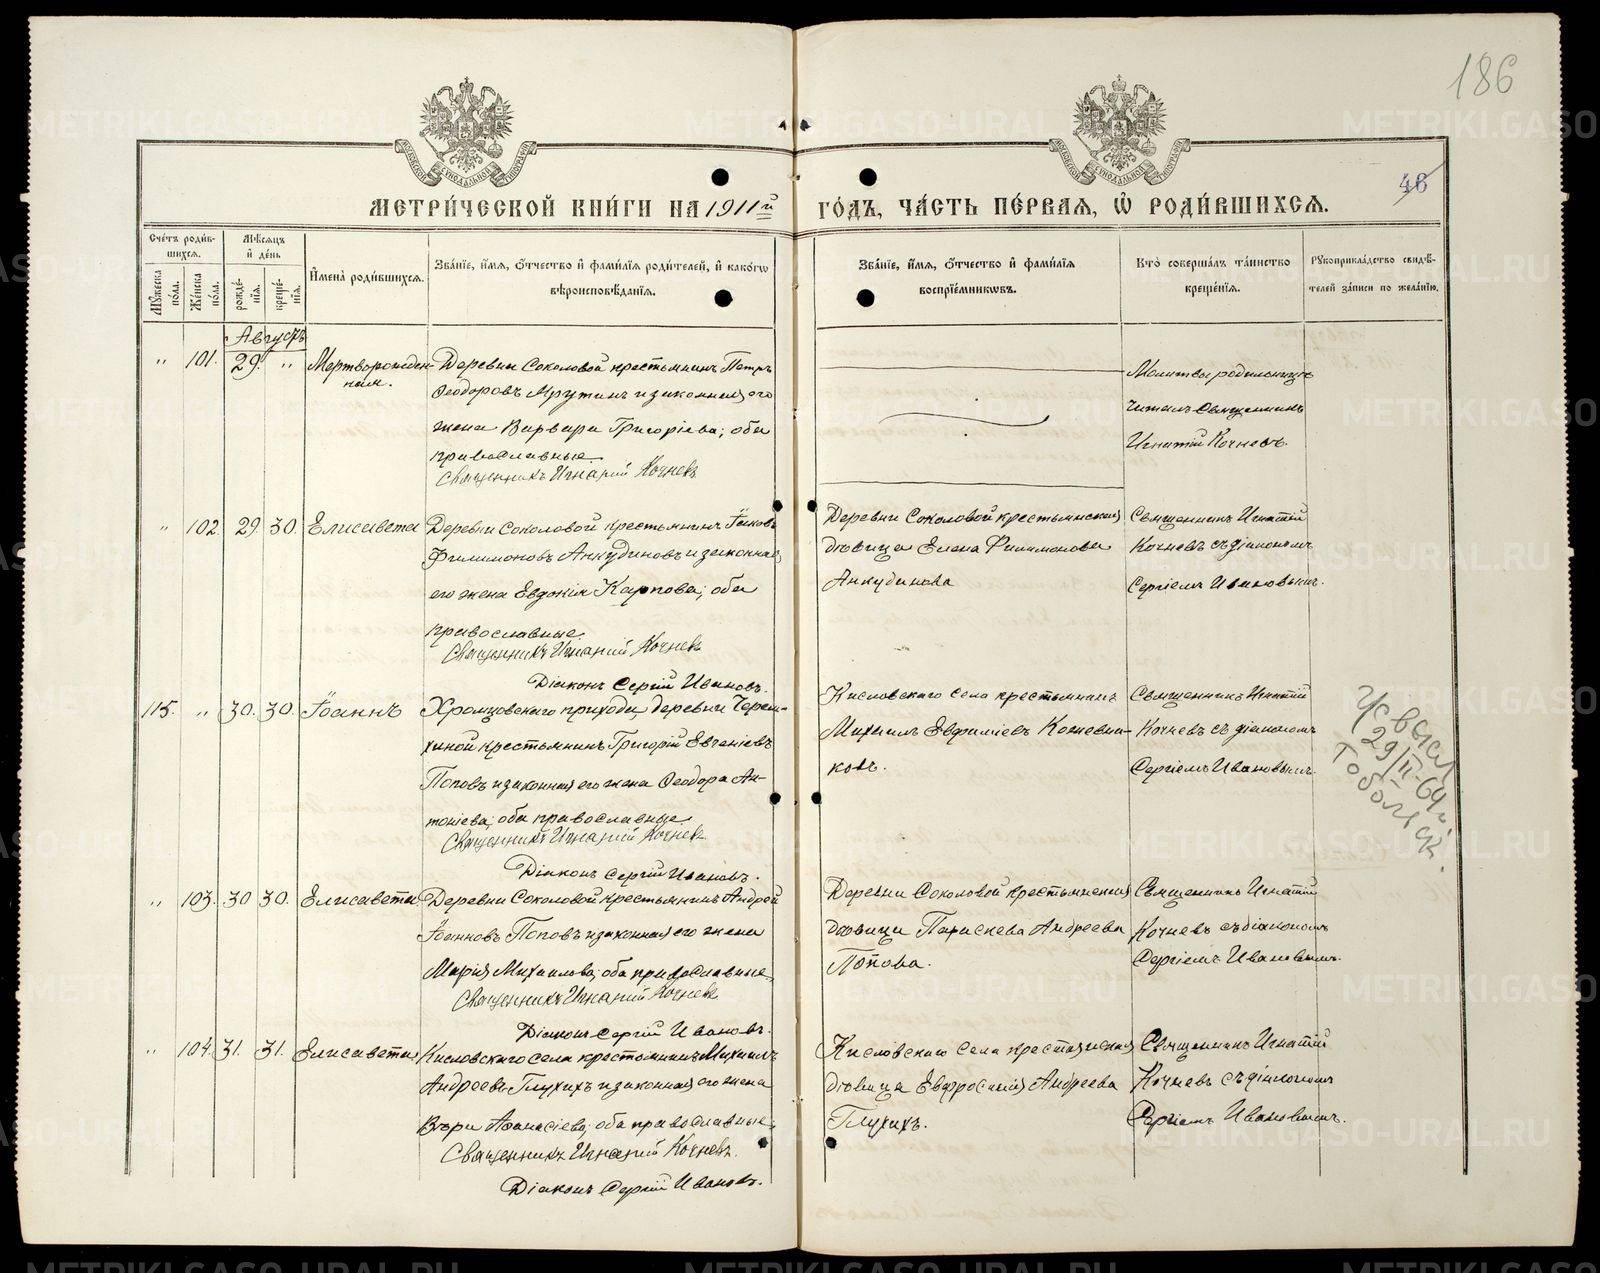 186
46
МЕТРИ́ЧЕСКОЙ КНИ́ГИ НА 1911й ГО́ДЪ, ЧА́СТЬ ПЕ́РВАЯ, Ѽ РОДИ́ВШИХСѦ.
Сче́тъ роди́в-
шихсѧ.
Мꙋ́жеска
по́ла.
Же́нска
по́ла.
Мѣ́сѧцъ
и҆ де́нь
рожде́-
нїѧ.
креще́-
нїѧ.
И҆мена̀ роди́вшихсѧ.
Зва́нїе, и҆́мѧ, ѻ҆́тчество и҆ фами́лїѧ роди́телей, и҆ како́гѡ
вѣроисповѣ́данїѧ.
Зва́нїе, и҆́мѧ, ѻ҆́тчество и҆ фами́лїѧ
воспрїе́мникѡвъ.
Кто̀ соверша́лъ та́инство
креще́нїѧ.
Рꙋкоприкла́дство свидѣ́-
телей за́писи по жела́нїю.
Августъ
„ 101. 29. „ Мертворожден-
ная.
Деревни Соколовой крестьянинъ Петръ
Ѳеодоровъ Мрутинъ и законная его
жена Варвара Григоріева; оба
православные
Священникъ Игнатій Кочневъ
Молитвы родильницѣ
читалъ Священникъ
Игнатій Кочневъ.
„ 102. 29. 30. Елисавета
Деревни Соколовой крестьянинъ Іаковъ
Филимоновъ Анкудиновъ и законная
его жена Евдокія Карпова; оба
православные
Священникъ Игнатій Кочневъ
Діаконъ Сергій Ивановъ.
Деревни Соколовой крестьянская
дѣвица Елена Филимонова
Анкудинова
Священникъ Игнатій
Кочневъ съ діакономъ
Сергіемъ Ивановымъ.
115. „ 30. 30. Іоаннъ
Хромцовскаго прихода, деревни Черем-
хиной крестьянинъ Григорій Евгеніевъ
Поповъ и законная его жена Ѳеодора Ан-
тоніева; оба православные
Священникъ Игнатій Кочневъ
Діаконъ Сергій Ивановъ.
Кисловскаго села крестьянинъ
Михаилъ Евфиміевъ Кожевни-
ковъ.
Священникъ Игнатій
Кочневъ съ діакономъ
Сергіемъ Ивановымъ.
29/II-64
Тобольск.
„ 103. 30 30. Елисавета
Деревни Соколовой крестьянинъ Андрей
Іоанновъ Поповъ и законная его жена
Марія Михаилова; оба православные
Священникъ Игнатій Кочневъ
Діаконъ Сергій Ивановъ.
Деревни Соколовой крестьянская
дѣвица Параскева Андреева
Попова.
Священникъ Игнатій
Кочневъ съ діакономъ
Сергіемъ Ивановымъ.
„ 104. 31. 31. Елисавета
Кисловскаго села крестьянинъ Михаилъ
Андреевъ Глухихъ и законная его жена
Вѣра Аѳанасіева; оба православные
Священникъ Игнатій Кочневъ.
Діаконъ Сергій Ивановъ.
Кисловскаго села крестьянская
дѣвица Евфросинія Андреева
Глухихъ.
Священникъ Игнатій
Кочневъ съ діакономъ
Сергіемъ Ивановымъ.
METRIKI.GASO-URAL.RU